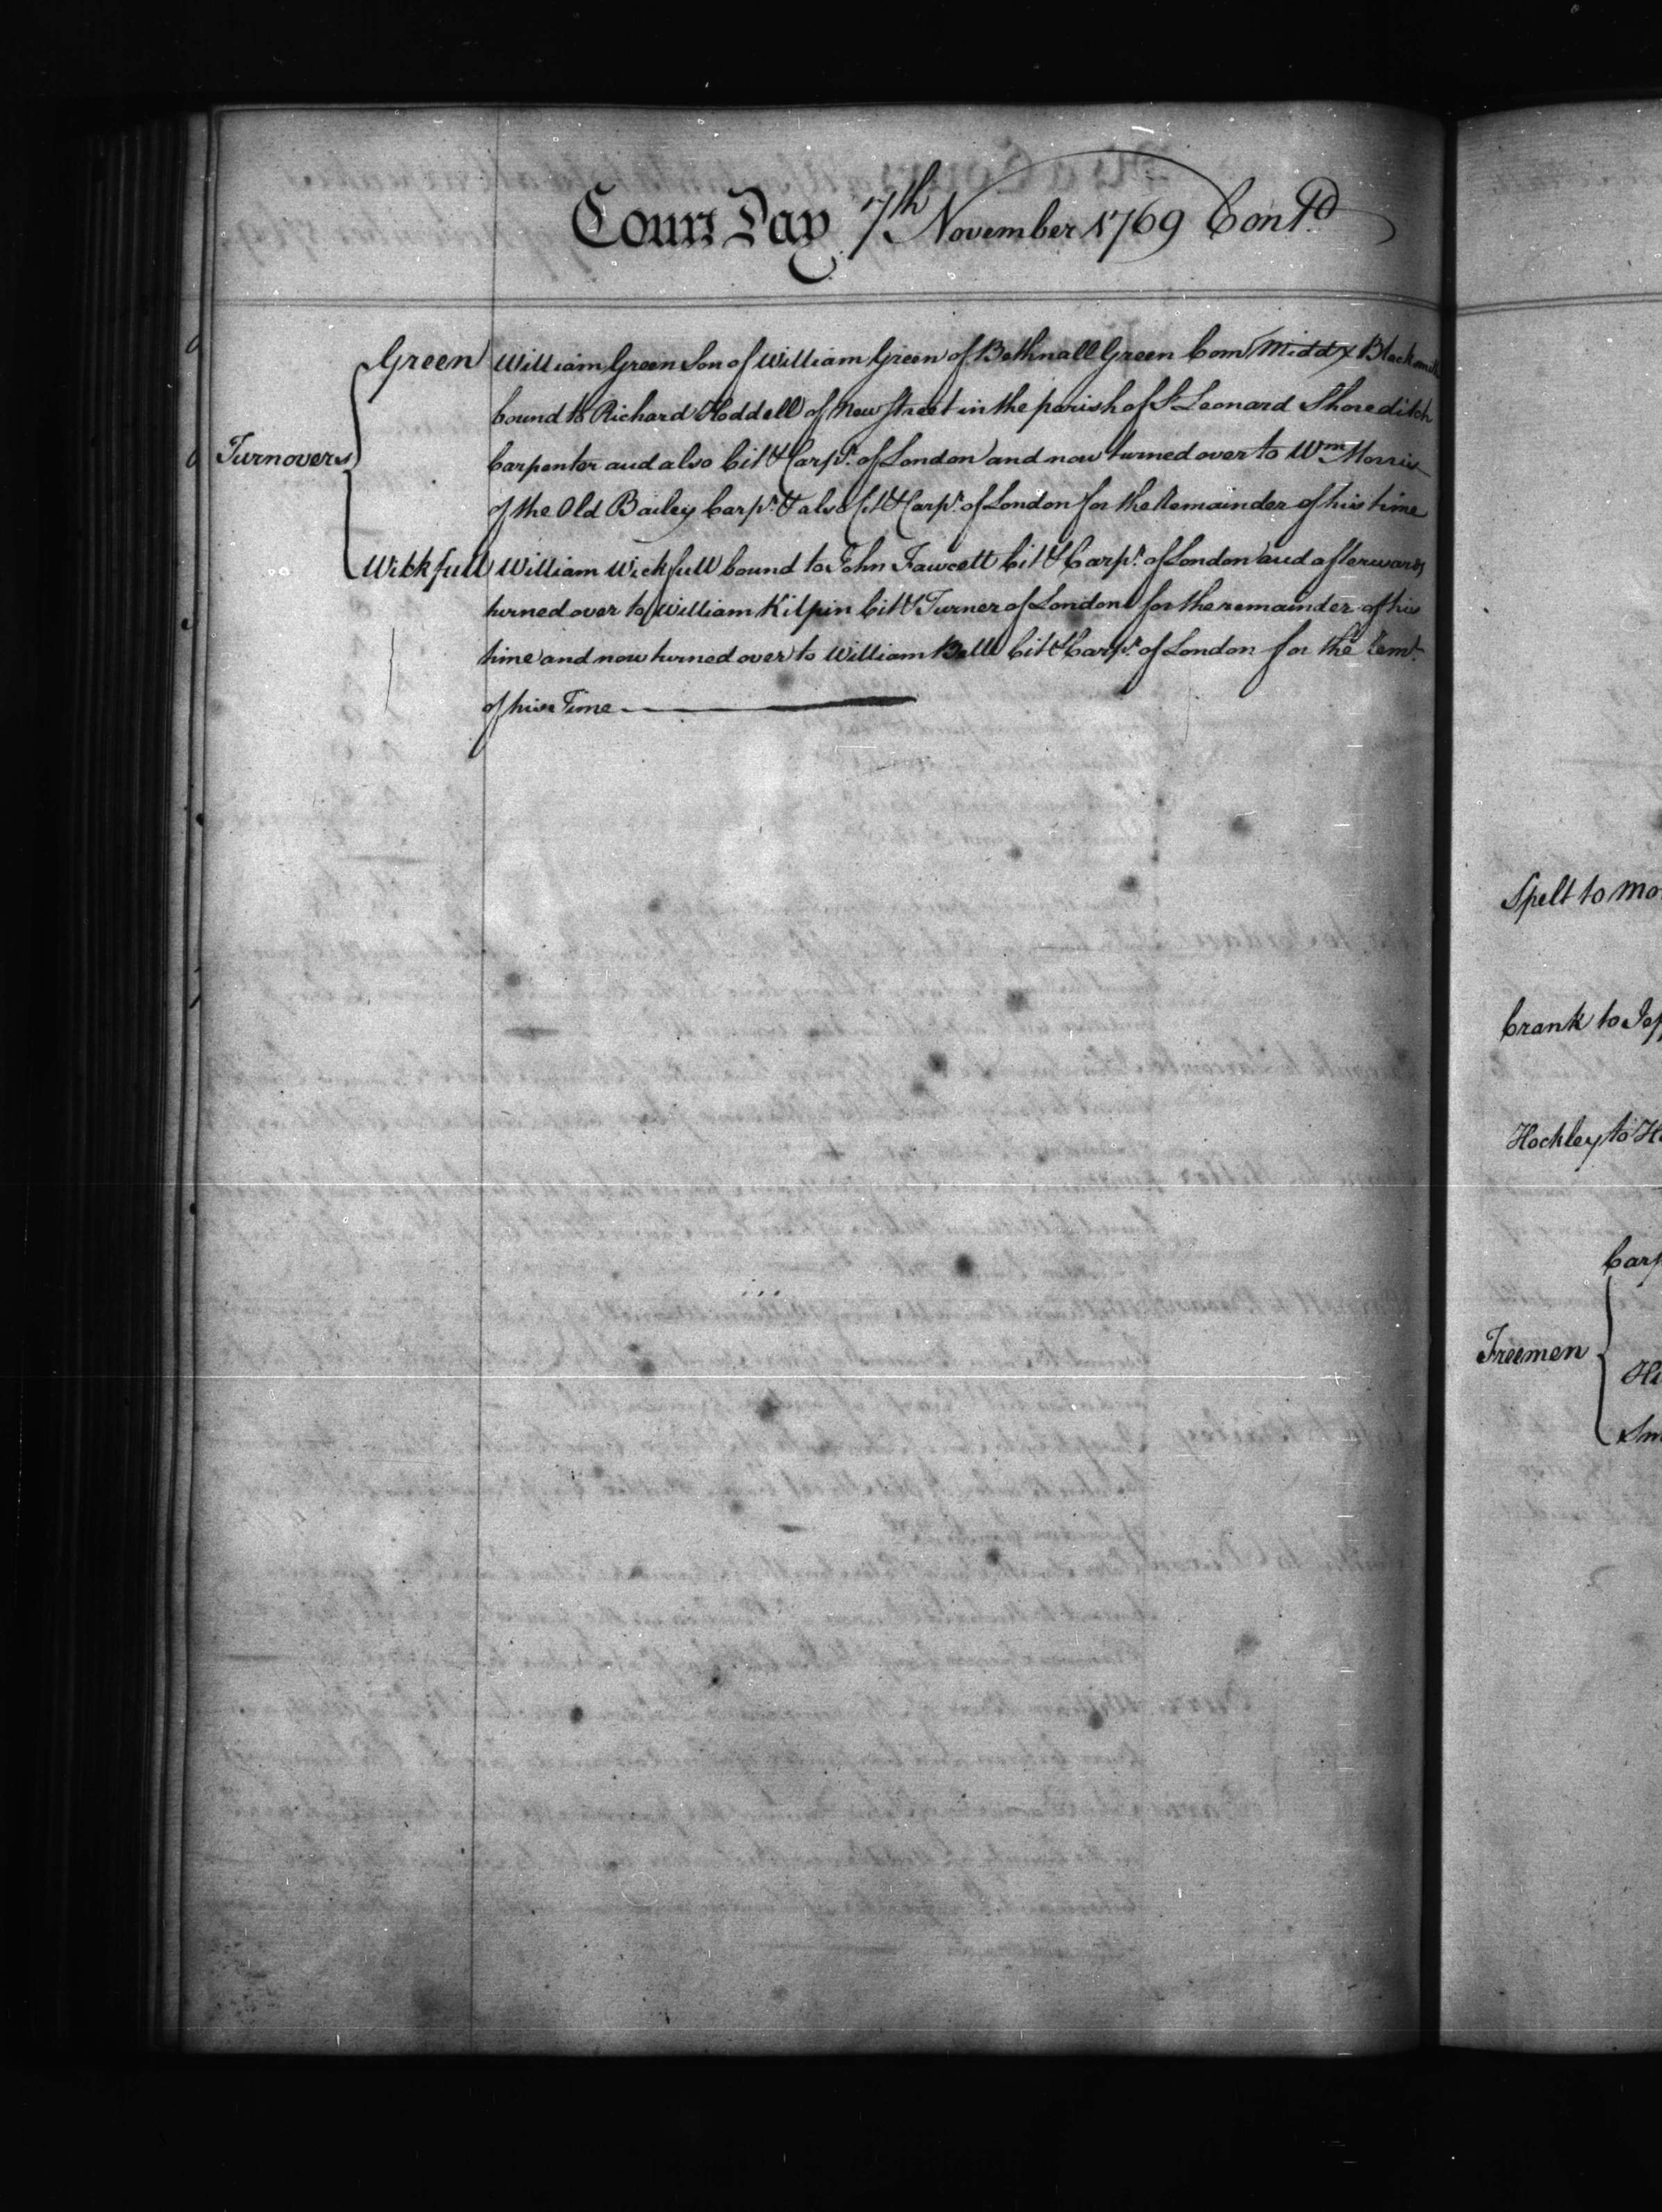 Court Day 7th November 1769 Contd
Green William Green Son of William Green of Bethnall Green Com Middx Blacksmith
bound to Richard Hoddell of New Street in the parish of St Leonard Shoreditch
Turnovers Carpenter and also Citt & Carpr. of London and now turned over to Wm Morris
of the Old Bailey Carpr. & also Citt & Carpr. of London for the Remainder of his time
Wickfull William Wickfull bound to John Fawcett Citt & Carpr. of London and afterwards
turned over to William Kilpin Citt & Turner of London for the remainder of his
time and now turned over to William Bell Citt & Carpr. of London for the Remr.
of his Time
Spelt to Mo
Crank to Jep
Hockley to H
Carp
Freemen
Hi
Sm